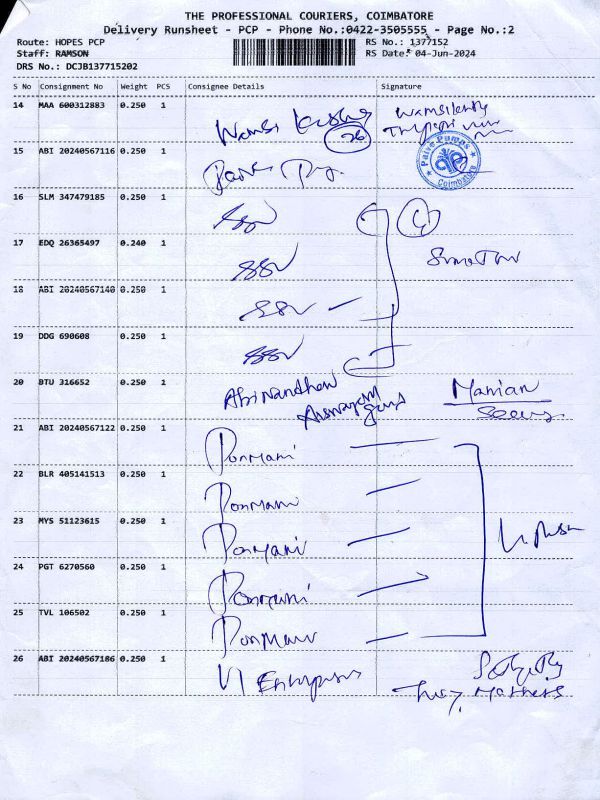 THE PROFESSIONAL COURIERS, COIMBATORE
Delivery Runsheet - PCP - Phone No.:0422-3505555 - Page No.:2
Route: HOPES PCP RS No.: 1377152
Staff: RAMSON RS Date: 04-Jun-2024
DRS No.: DCJB137715202
S No Consignment No Weight PCS Consignee Details Signature
14 MAA 600312883 0.250 1 Wamsi
26
15 ABI 20240567116 0.250 1
Pumps
Coimbatore
16 SLM 347479185 0.250 1 SSV 4
17 EDQ 26365497 0.240 1 SSV
18 ABI 20240567140 0.250 1 SSV
19 DDG 690608 0.250 1 SSV
20 BTU 316652 0.250 1 Abinandhan Manian
21 ABI 20240567122 0.250 1 Ponmani
22 BLR 405141513 0.250 1 Ponmani
23 MYS 51123615 0.250 1 Ponmani
24 PGT 6270560 0.250 1 Ponmani
25 TVL 106502 0.250 1 Ponmani
26 ABI 20240567186 0.250 1 VI